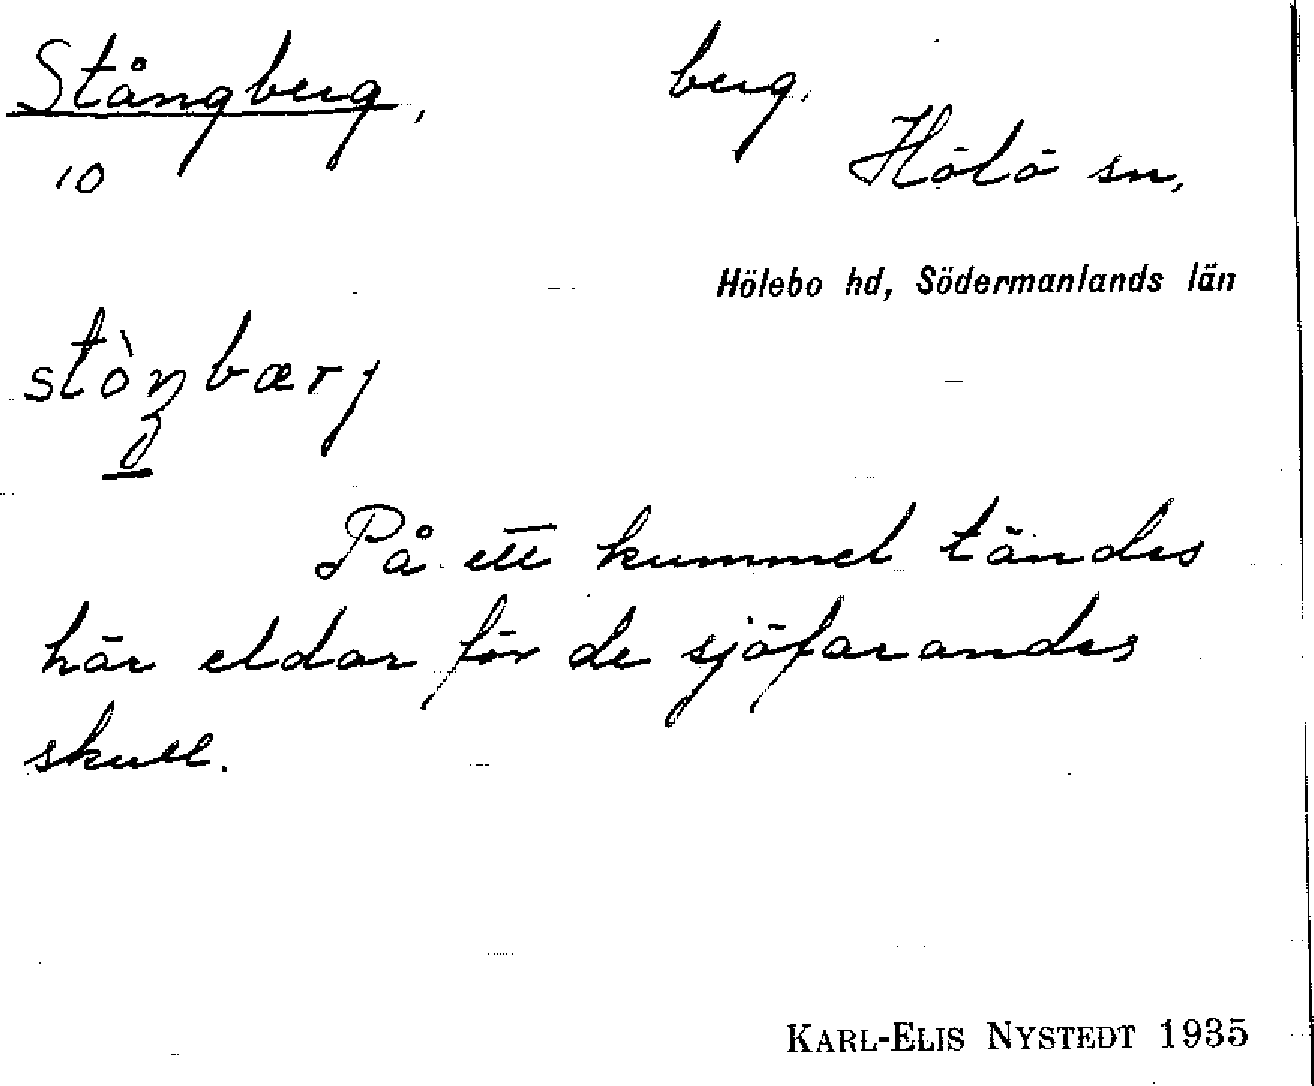 Stångberg, berg.
10
Hölö sn,
Hölebo hd, Södermanlands län
På ett kummel tändes
här eldar för de sjöfarandes
skull.
KARL-ELIS NYSTEDT 1935